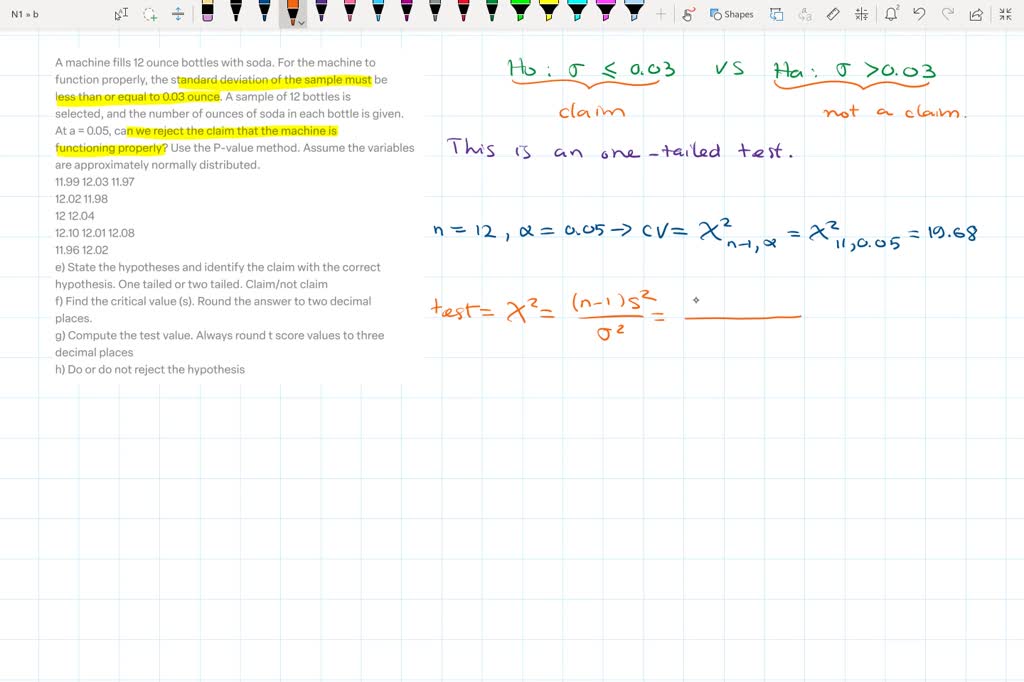 N1 » b
Shapes
2
A machine fills 12 ounce bottles with soda. For the machine to
function properly, the standard deviation of the sample must be
less than or equal to 0.03 ounce. A sample of 12 bottles is
selected, and the number of ounces of soda in each bottle is given.
At a = 0.05, can we reject the claim that the machine is
functioning properly? Use the P-value method. Assume the variables
are approximately normally distributed.
11.99 12.03 11.97
12.02 11.98
12 12.04
12.10 12.01 12.08
11.96 12.02
e) State the hypotheses and identify the claim with the correct
hypothesis. One tailed or two tailed. Claim/not claim
f) Find the critical value (s). Round the answer to two decimal
places.
g) Compute the test value. Always round t score values to three
decimal places
h) Do or do not reject the hypothesis
Ho: σ ≤ 0.03 vs Ha: σ >0.03
claim not a claim.
This is an one-tailed test.
n = 12, α = 0.05 → CV = χ²n-1,α = χ²11,0.05 = 19.68
test = χ² = (n-1)s² / σ² =